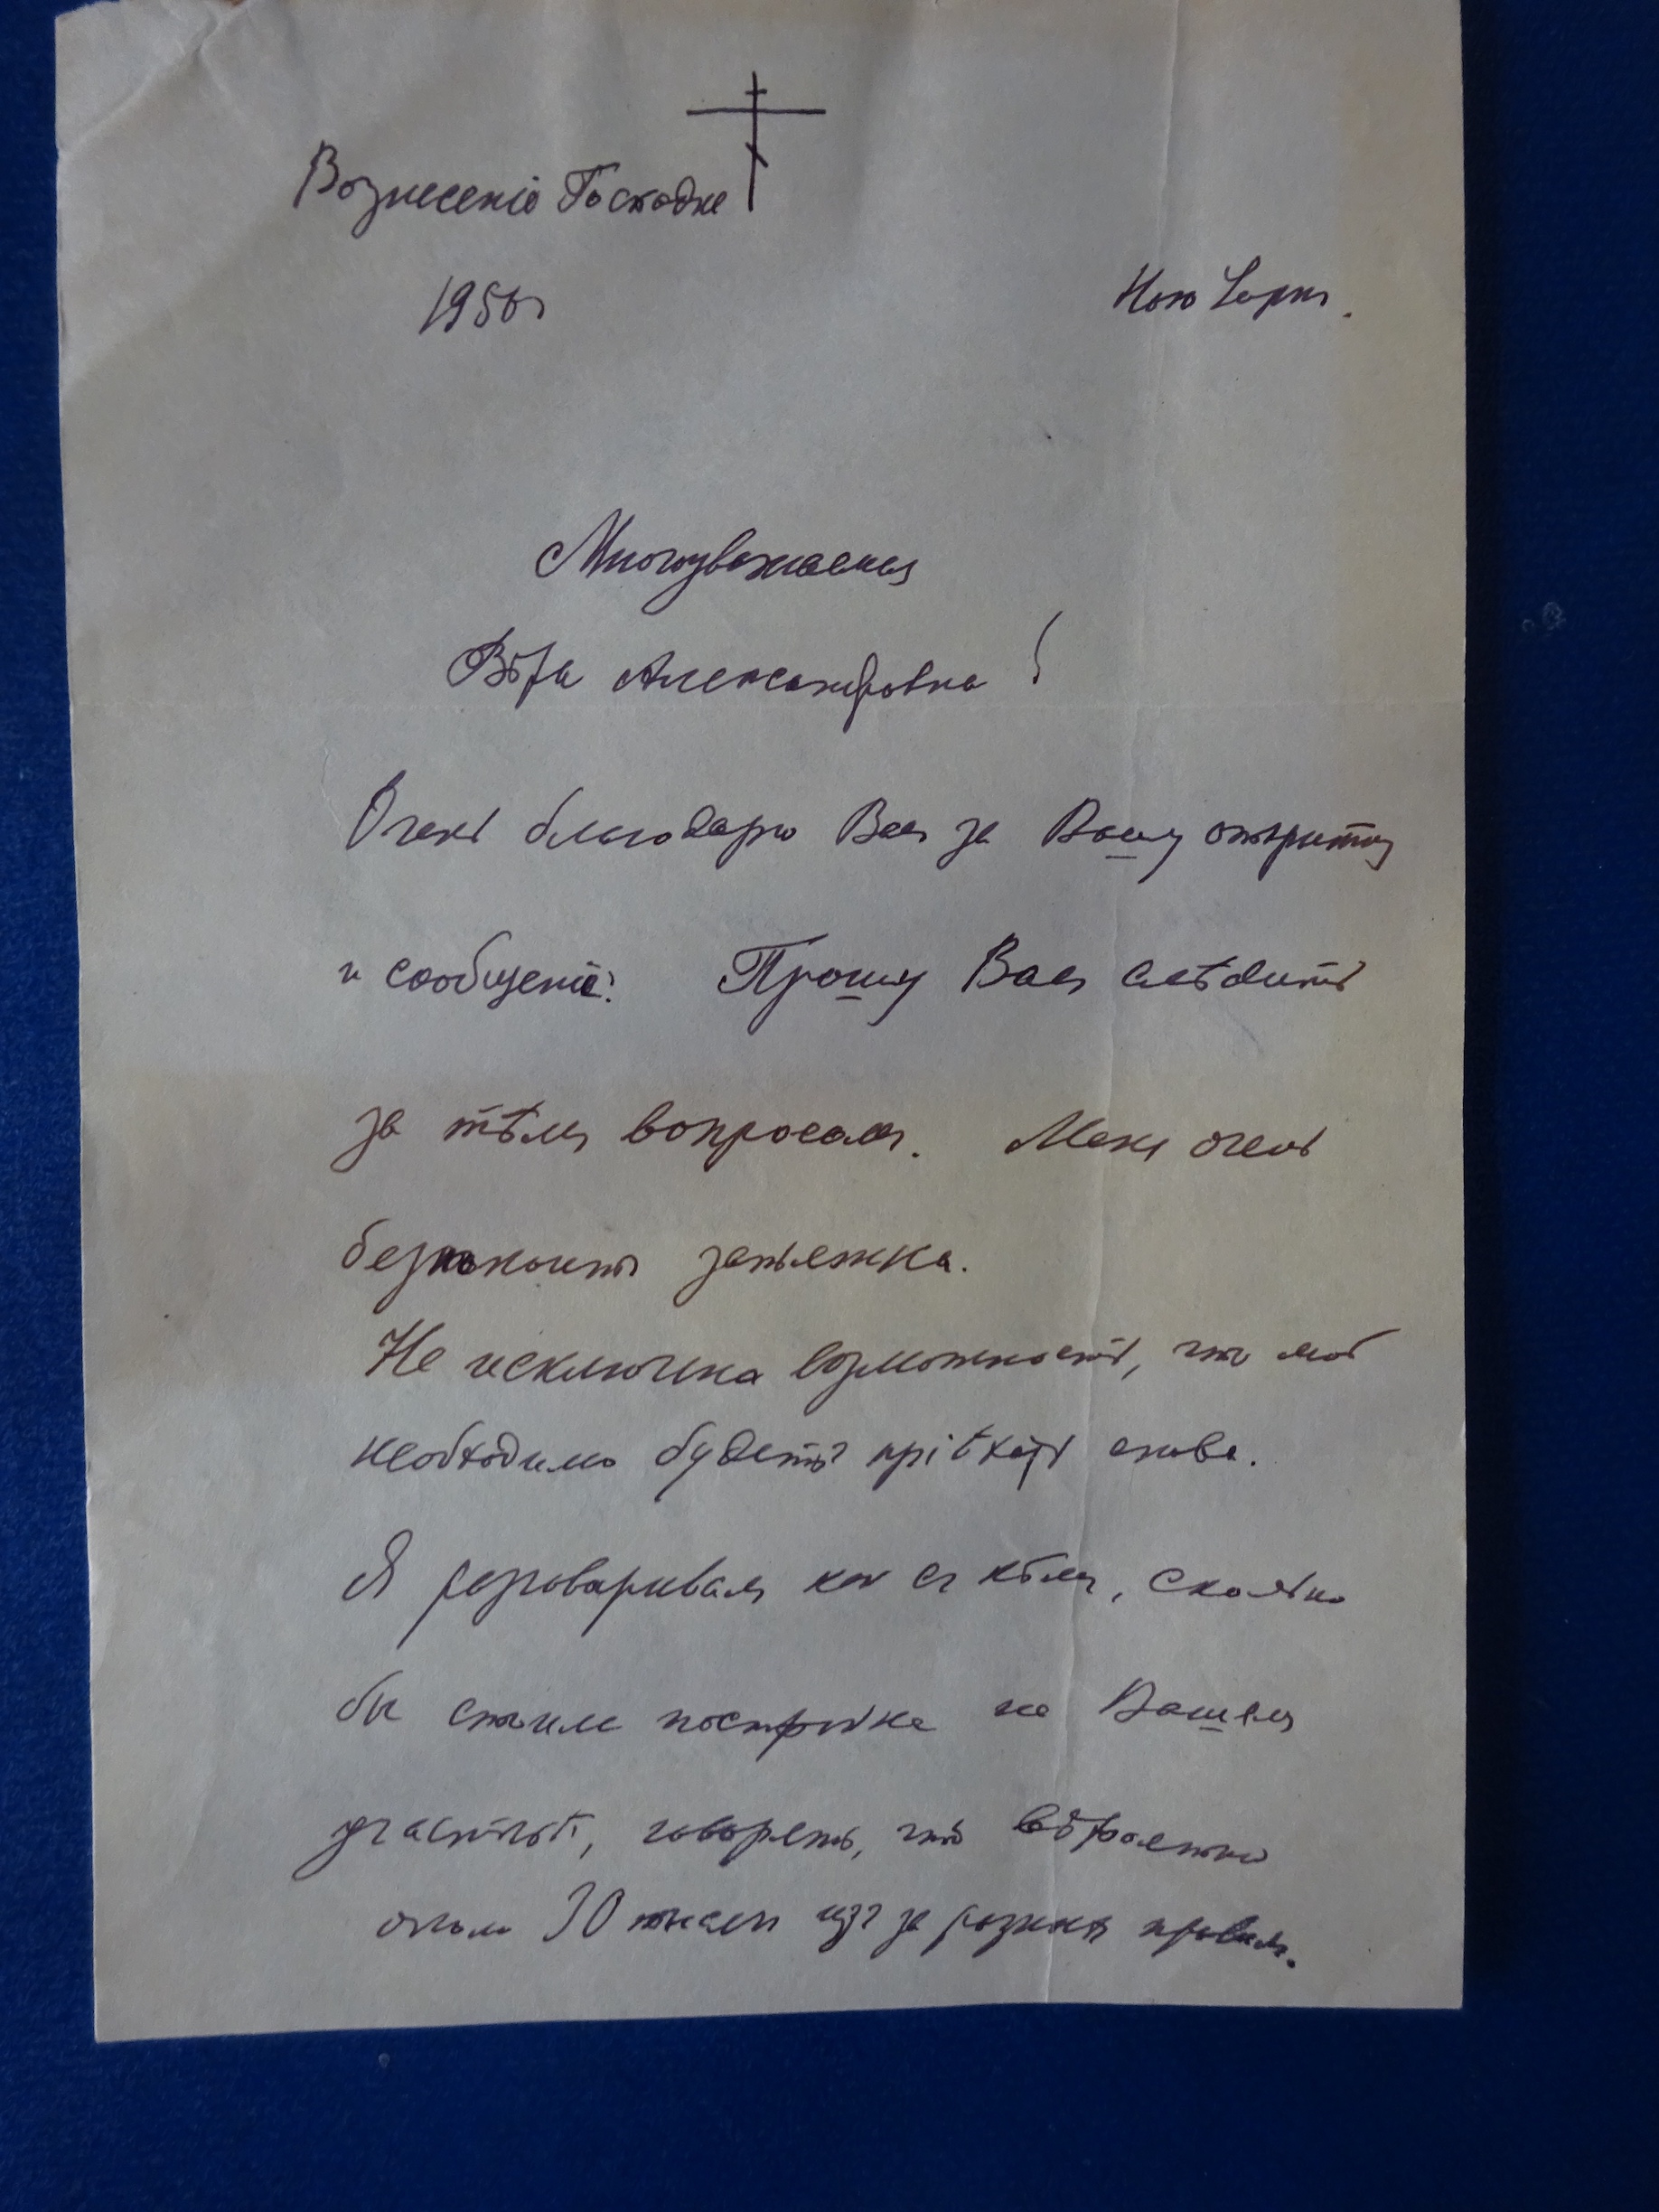 Вознесеніе Господне
1950г
Нью Iоркъ.
Многоуважаемая
Вѣра Александровна!
Очень благодарю Васъ за Вашу открытку
и сообщеніе. Прошу Васъ слѣдить
за тѣмъ вопросомъ. Меня очень
безпокоитъ затяжка.
Не исключена возможность, что мнѣ
необходимо будетъ пріѣхать снова.
Я разговаривалъ кое съ кѣмъ, сколько
бы стоила постройка на Вашемъ
участкѣ, говорятъ, что вѣроятно
около 30 тысяч изъ за разныхъ правилъ.